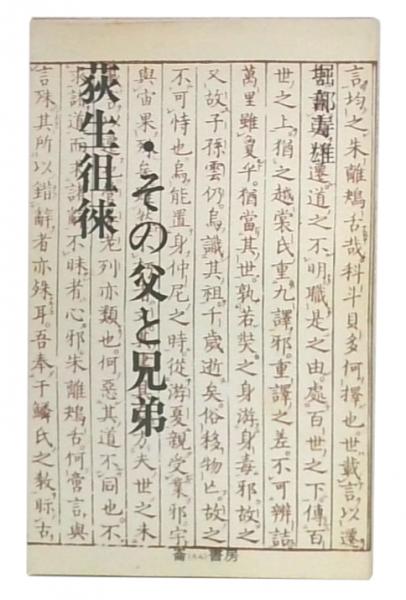 堀部寿雄
荻生徂徠
・その父と兄弟
言均之朱離鴂舌哉科斗貝多何擇也世載言以遷
遷道之不明職是之由處百世之下傳百
世之上猶之越裳氏重九譯邪重譯之差不可辨詰
萬里雖夐乎猶當其世孰若奘之身游身毒邪故之
又故子孫雲仍烏識其祖千歲逝矣俗移物亡故之
不可恃也烏能置身仲尼之時從游夏親受業邪宇
與宙果夫世之未
老列亦類也何惡其道不同也不
求諸道而求不昧者心邪朱離鴂舌何嘗言與
言殊其所以錯辭者亦殊耳吾奉于鱗氏之教眎古
崙書房